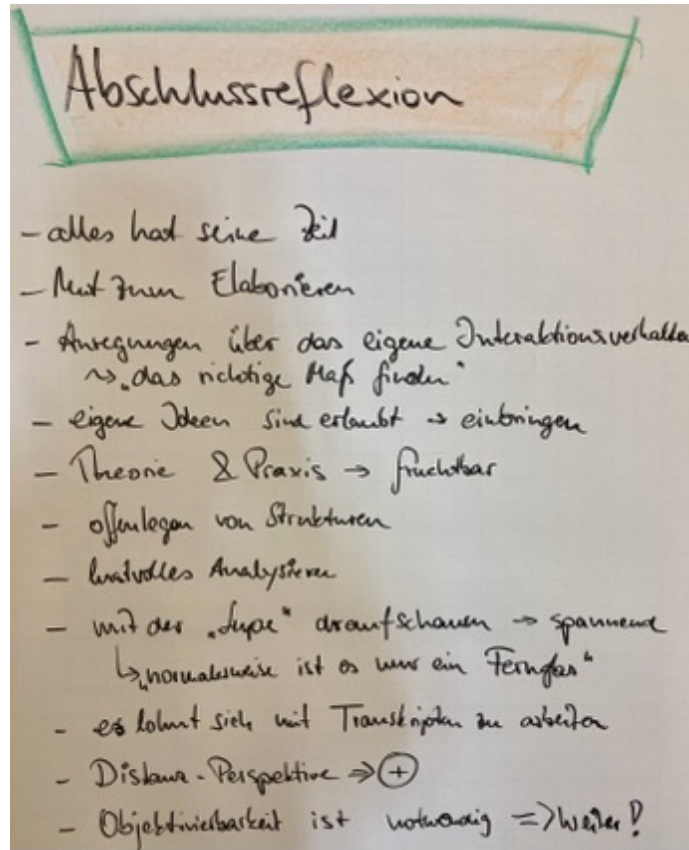 Abschlussreflexion
- alles hat seine Zeit
- Mut zum Elaborieren
- Anregungen über das eigene Interaktionsverhalten
↝ „das richtige Maß finden“
- eigene Ideen sind erlaubt → einbringen
- Theorie & Praxis → fruchtbar
- offenlegen von Strukturen
- Analysieren
- mit der „Lupe“ draufschauen → spannend
↳ „normalerweise ist es nur ein Fernglas“
- es lohnt sich mit Transkripten zu arbeiten
- Distanz-Perspektive ⇒ ⊕
- Objektivierbarkeit ist notwendig => Weiter!